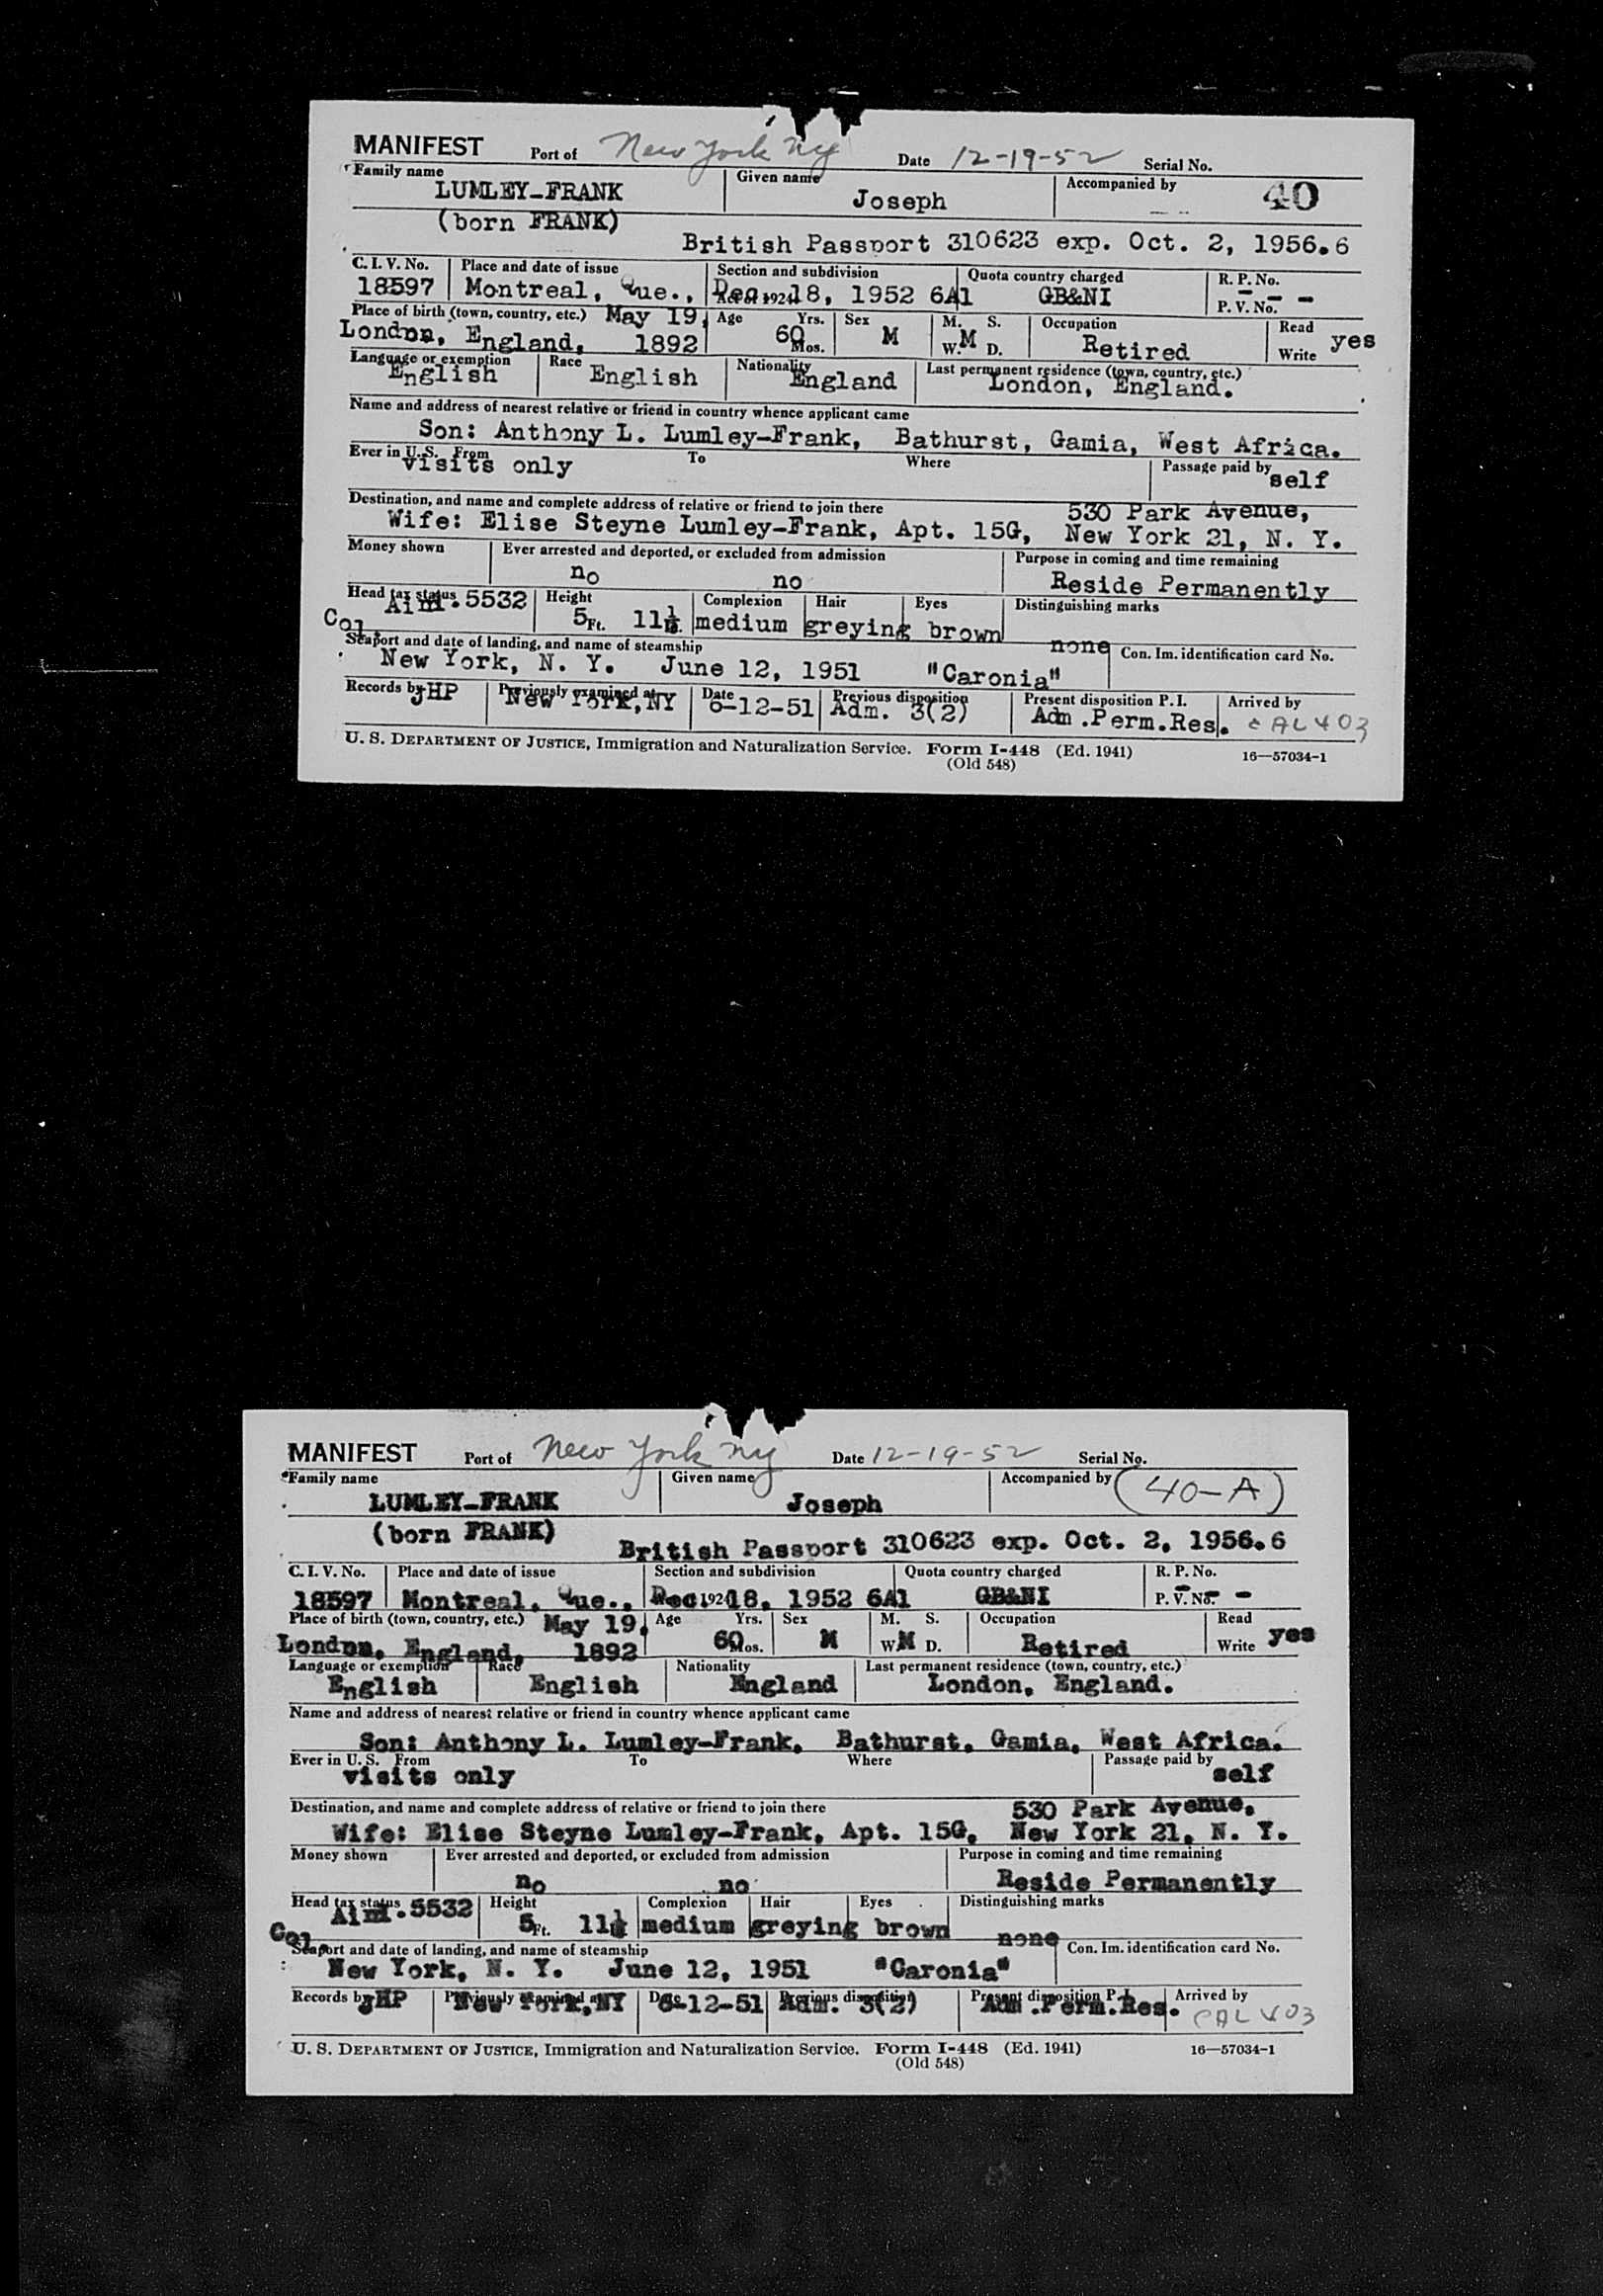 MANIFEST Port of New York NY Date 12-19-52 Serial No.
Family name Given name Accompanied by 40
LUMLEY-FRANK Joseph -- --
(born FRANK)
British Passport 310623 exp. Oct. 2, 1956.6
C. I. V. No. Place and date of issue Section and subdivision Quota country charged R. P. No. -
18597 Montreal, Que., Dec. 18, 1952 6A1 GB&NI P. V. No. - -
Place of birth (town, country, etc.) May 19, Age Yrs. Sex M. S. Occupation Read
London, England, 1892 60 Mos. M W. M D. Retired Write yes
Language or exemption Race Nationality Last permanent residence (town, country, etc.)
English English England London, England.
Name and address of nearest relative or friend in country whence applicant came
Son: Anthony L. Lumley-Frank, Bathurst, Gamia, West Africa.
Ever in U.S. From To Where Passage paid by
visits only self
Destination, and name and complete address of relative or friend to join there 530 Park Avenue,
Wife: Elise Steyne Lumley-Frank, Apt. 15G, New York 21, N. Y.
Money shown Ever arrested and deported, or excluded from admission Purpose in coming and time remaining
no no Reside Permanently
Head tax status Height Complexion Hair Eyes Distinguishing marks
5532 5 Ft. 11½ medium greying brown none
Col.
Seaport and date of landing, and name of steamship Con. Im. identification card No.
New York, N. Y. June 12, 1951 "Caronia"
Records by Previously examined at Date Previous disposition Present disposition P. I. Arrived by
JHP New York, NY 6-12-51 Adm. 3(2) Adm.Perm.Res. CAL 403
U. S. DEPARTMENT OF JUSTICE, Immigration and Naturalization Service. Form I-448 (Ed. 1941) 16—57034-1
(Old 548)
MANIFEST Port of New York NY Date 12-19-52 Serial No.
Family name Given name Accompanied by (40-A)
LUMLEY-FRANK Joseph
(born FRANK)
British Passport 310623 exp. Oct. 2, 1956.6
C. I. V. No. Place and date of issue Section and subdivision Quota country charged R. P. No.
18597 Montreal, Que., Dec 18, 1952 6A1 GB&NI P. V. No. - -
Place of birth (town, country, etc.) May 19, Age Yrs. Sex M. S. Occupation Read
London, England, 1892 60 Mos. M W. M D. Retired Write yes
Language or exemption Race Nationality Last permanent residence (town, country, etc.)
English English England London, England.
Name and address of nearest relative or friend in country whence applicant came
Son: Anthony L. Lumley-Frank, Bathurst, Gamia, West Africa.
Ever in U. S. From To Where Passage paid by
visits only self
Destination, and name and complete address of relative or friend to join there 530 Park Avenue,
Wife: Elise Steyne Lumley-Frank, Apt. 15G, New York 21, N. Y.
Money shown Ever arrested and deported, or excluded from admission Purpose in coming and time remaining
no no Reside Permanently
Head tax status Height Complexion Hair Eyes Distinguishing marks
5532 5 Ft. 11½ medium greying brown none
Col.
Seaport and date of landing, and name of steamship Con. Im. identification card No.
New York, N. Y. June 12, 1951 "Caronia"
Records by Previously examined at Date Previous disposition Present disposition P. I. Arrived by
JHP New York, NY 6-12-51 Adm. 3(2) Adm.Perm.Res. CAL 403
U. S. DEPARTMENT OF JUSTICE, Immigration and Naturalization Service. Form I-448 (Ed. 1941) 16—57034-1
(Old 548)